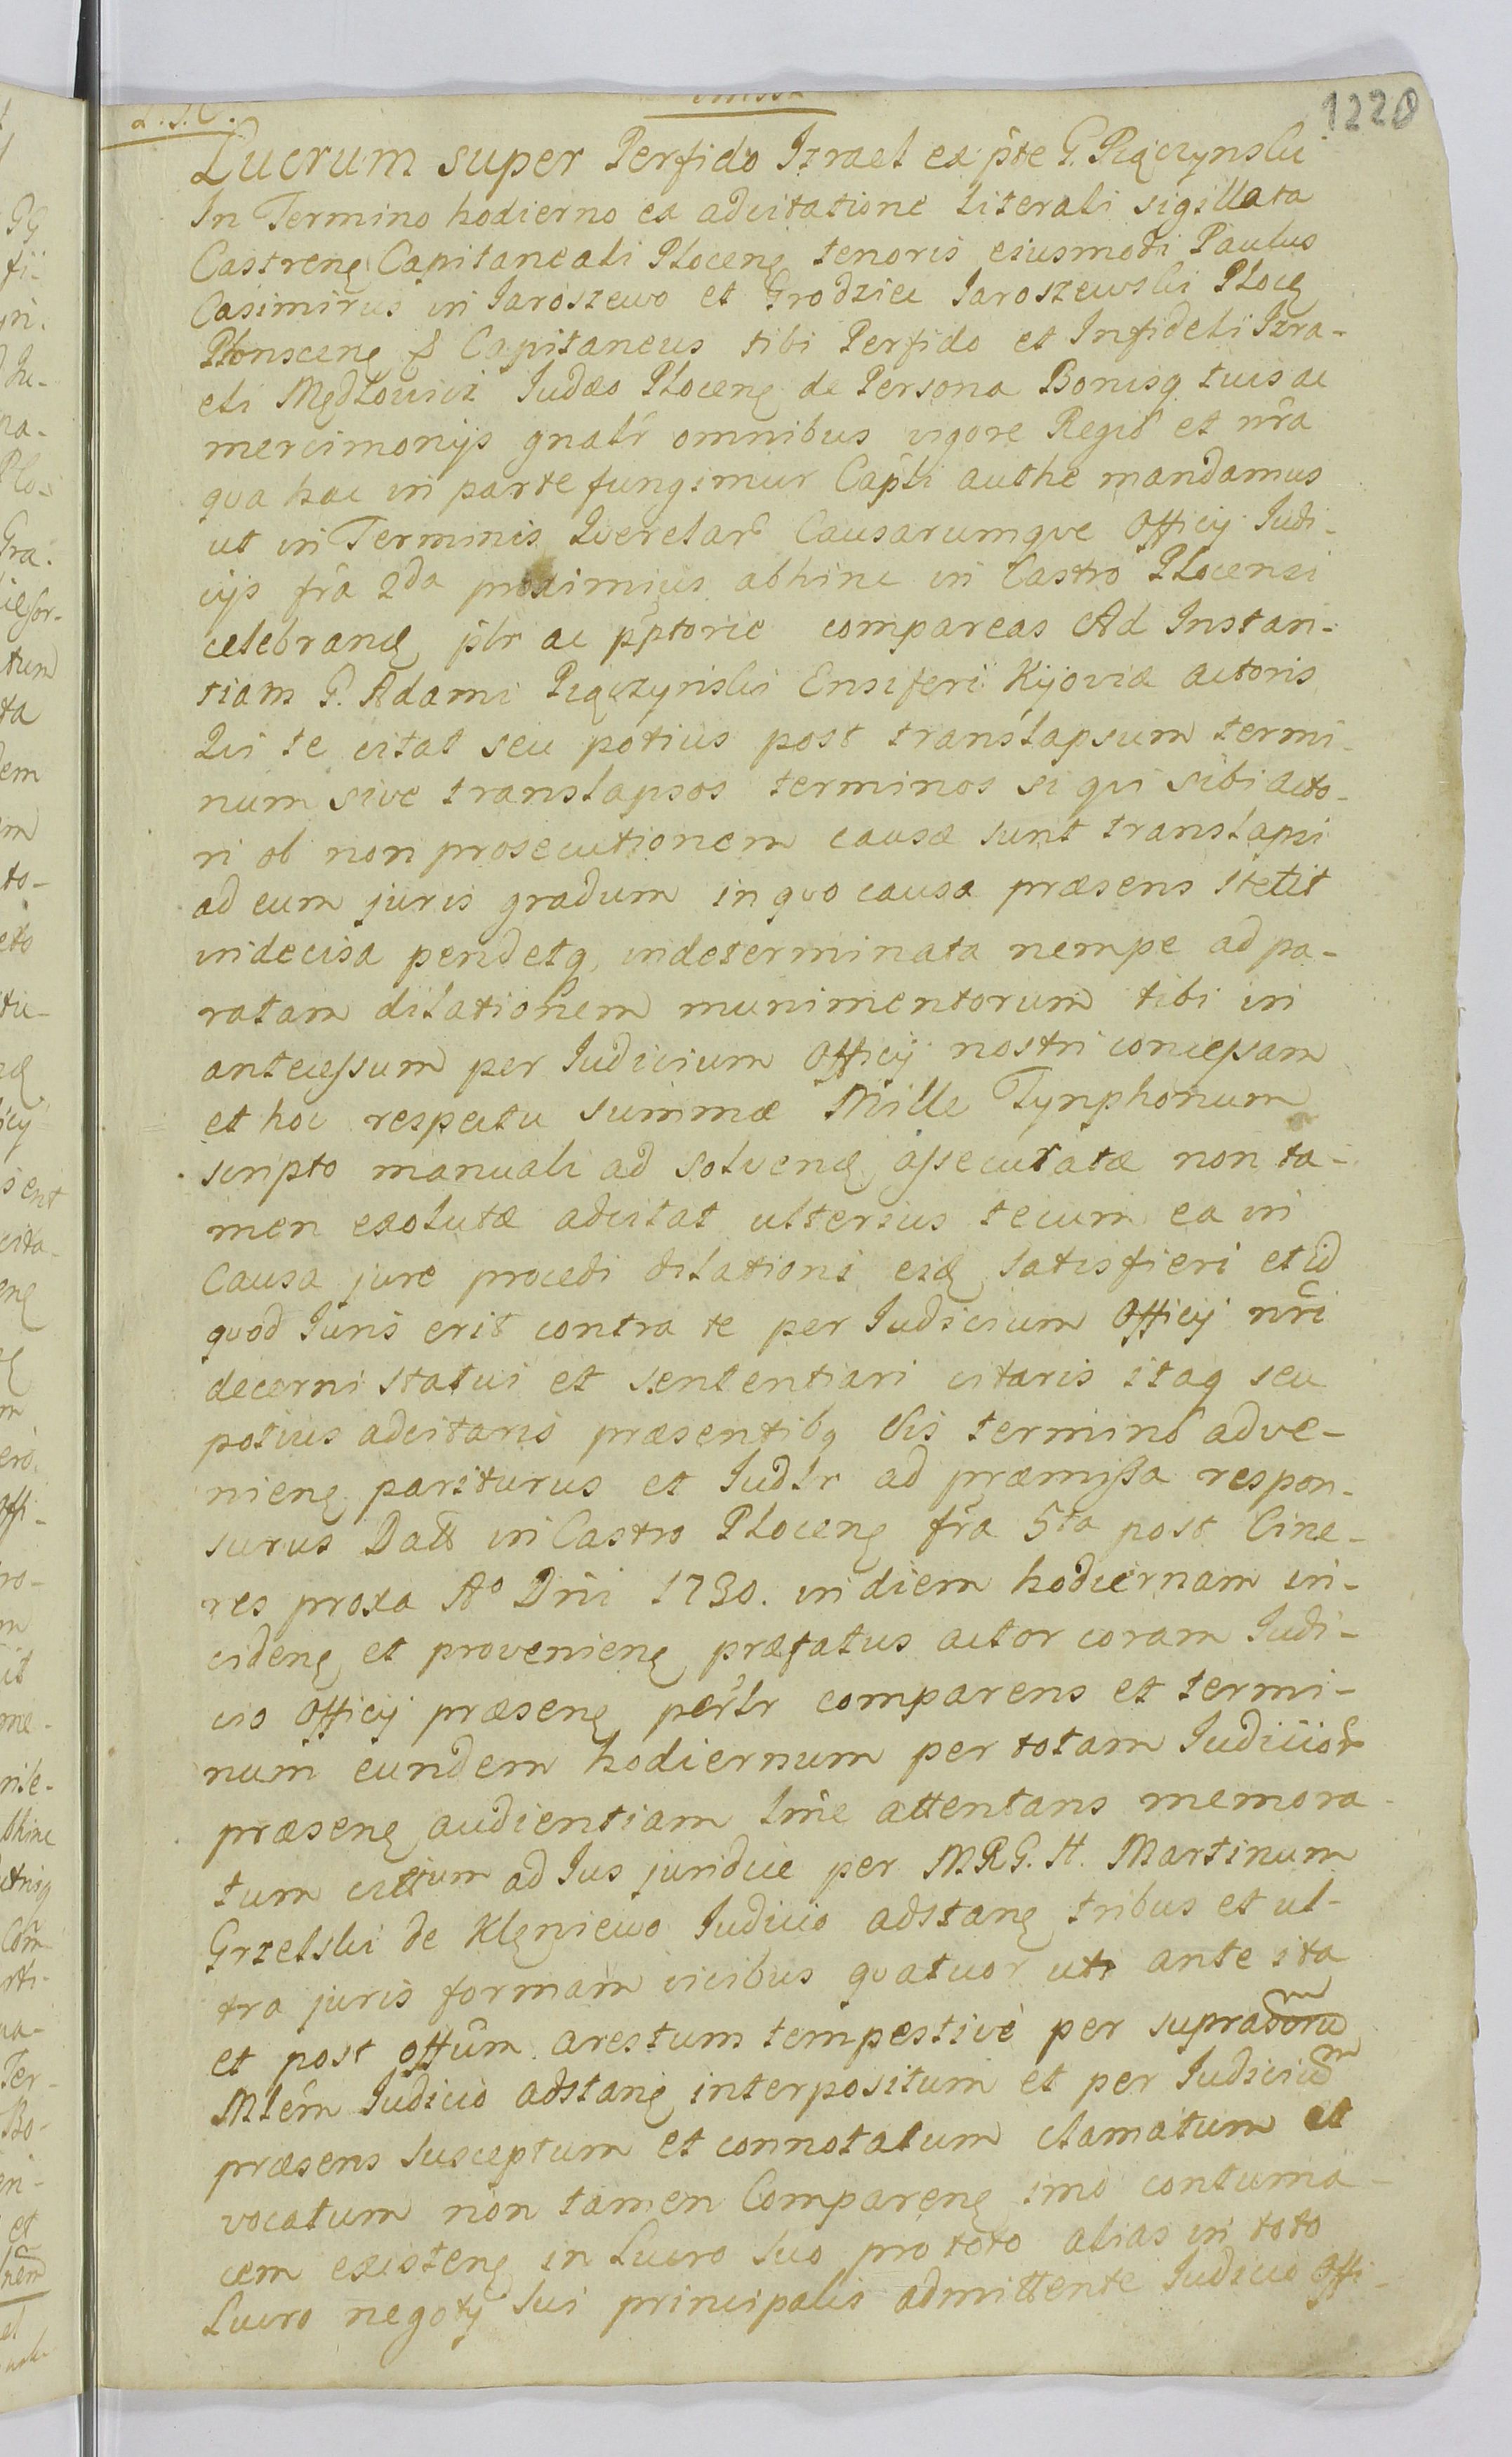 1220
L.J.C.
Lucrum super Perfido Izrael ex pte G. Pięczynski
In Termino hodierno ex adcitatione literali sigillata
Castreng Capitaneali Ploceng tenoris eiusmodi Paulus
Casimirus in Jaroszewo et Grodziec Jaroszewski Ploc̨
Plonsceng & Capitaneus tibi Perfido et Infideli Izra-
eli Mędlowicz Judæo Ploceng de Persona Bonisq tuis ac
mercimonijs gnalr omnibus vigore Regiô et nra
qua hac in parte fungimur Capli authe mandamus
ut in Terminis Qverelarô Causarumqve Officij Judi-
cijs fra 2da proximius abhinc in Castro Plocensi
celebrand plr ac pptorie compareas Ad Instan-
tiam G. Adami Pięczynski Ensiferi Kijoviæ actoris
Qui te citat seu potius post translapsum termi-
num sive translapsos terminos si qvi sibi acto-
ri ob non prosecutionem causæ sunt translapsi
ad eum juris gradum in qvo causa præsens stetit
indecisa pendetq, indeterminata nempe ad pa-
ratam dilationem munimentorum tibi in
antecessum per Judicium Officij nostri concessam
et hoc respectu summæ Mille Tynphonum
scripto manuali ad solvend assecuratæ non ta-
men exolutæ adcitat ulterius tecum ea in
Causa jure procedi dilationi eid satisfieri et id
qvod Juris erit contra te per Judicium Officij nri
decerni statui et sententiari citaris itaq seu
potius adcitaris præsentibq Vis terminô adve-
nieng pariturus et Judlr ad præmissa respon-
surus Datt in Castro Ploceng fra 5ta post Cine-
res proxa Aº Dni 1730. in diem hodiernam in-
cideng et provenieng præfatus actor coram Judi-
cio Officij præseng perlr comparens et termi-
num eundem hodiernum per totam Judicior
præseng audientiam lme attentans memora-
tum cittum ad Jus juridice per MRG. H. Martinum
Grzelski de Klęniewo Judicio adstang tribus et ul-
tra juris formam vicibus qvatuor uti ante ita
et post offum arestum tempestivè per supradum
Mlem Judicio adstang interpositum et per Judicium
præsens susceptum et connotatum clamatum et
vocatum non tamen Compareng imo contuma-
cem existeng in Lucro suo pro toto alias in toto
Lucro negotij sui principalis admittente Judicio Offi-